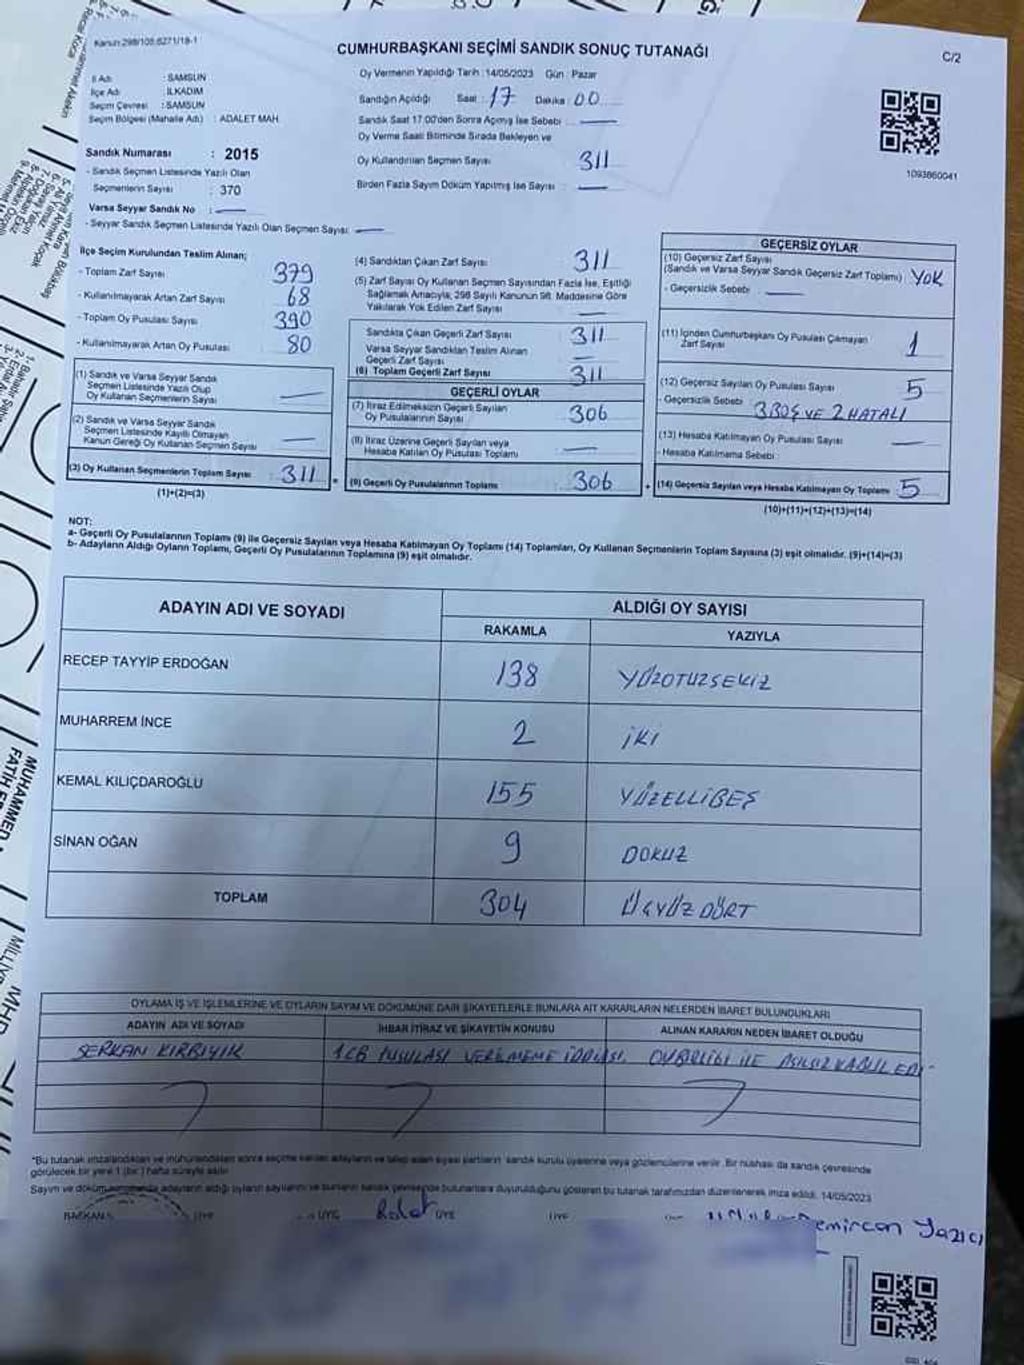 Kanun:298/105,6271/18-1
CUMHURBAŞKANI SEÇİMİ SANDIK SONUÇ TUTANAĞI
C/2
İl Adı : SAMSUN
İlçe Adı : İLKADIM
Seçim Çevresi : SAMSUN
Seçim Bölgesi (Mahalle Adı) : ADALET MAH.
Sandık Numarası : 2015
- Sandık Seçmen Listesinde Yazılı Olan
Seçmenlerin Sayısı : 370
Varsa Seyyar Sandık No :
- Seyyar Sandık Seçmen Listesinde Yazılı Olan Seçmen Sayısı:
Oy Vermenin Yapıldığı Tarih :14/05/2023 Gün : Pazar
Sandığın Açıldığı Saat : 17 Dakika : 00
Sandık Saat 17.00'den Sonra Açılmış İse Sebebi :
Oy Verme Saati Bitiminde Sırada Bekleyen ve
Oy Kullandırılan Seçmen Sayısı 311
Birden Fazla Sayım Döküm Yapılmış İse Sayısı :
1093860041
İlçe Seçim Kurulundan Teslim Alınan;
- Toplam Zarf Sayısı 379
- Kullanılmayarak Artan Zarf Sayısı 68
- Toplam Oy Pusulası Sayısı 390
- Kullanılmayarak Artan Oy Pusulası 80
(1) Sandık ve Varsa Seyyar Sandık
Seçmen Listesinde Yazılı Olup
Oy Kullanan Seçmenlerin Sayısı
(2) Sandık ve Varsa Seyyar Sandık
Seçmen Listesinde Kayıtlı Olmayan
Kanun Gereği Oy Kullanan Seçmen Sayısı
(3) Oy Kullanan Seçmenlerin Toplam Sayısı 311
(1)+(2)=(3)
(4) Sandıktan Çıkan Zarf Sayısı 311
(5) Zarf Sayısı Oy Kullanan Seçmen Sayısından Fazla İse, Eşitliği
Sağlamak Amacıyla; 298 Sayılı Kanunun 98. Maddesine Göre
Yakılarak Yok Edilen Zarf Sayısı
Sandıkta Çıkan Geçerli Zarf Sayısı 311
Varsa Seyyar Sandıktan Teslim Alınan
Geçerli Zarf Sayısı
(6) Toplam Geçerli Zarf Sayısı 311
GEÇERLİ OYLAR
(7) İtiraz Edilmeksizin Geçerli Sayılan
Oy Pusulalarının Sayısı 306
(8) İtiraz Üzerine Geçerli Sayılan veya
Hesaba Katılan Oy Pusulası Toplamı
(9) Geçerli Oy Pusulalarının Toplamı 306
GEÇERSİZ OYLAR
(10) Geçersiz Zarf Sayısı
(Sandık ve Varsa Seyyar Sandık Geçersiz Zarf Toplamı) YOK
- Geçersizlik Sebebi :
(11) İçinden Cumhurbaşkanı Oy Pusulası Çıkmayan
Zarf Sayısı 1
(12) Geçersiz Sayılan Oy Pusulası Sayısı 5
- Geçersizlik Sebebi : 3 BOŞ VE 2 HATALI
(13) Hesaba Katılmayan Oy Pusulası Sayısı
- Hesaba Katılmama Sebebi :
(14) Geçersiz Sayılan veya Hesaba Katılmayan Oy Toplamı 5
(10)+(11)+(12)+(13)=(14)
NOT:
a- Geçerli Oy Pusulalarının Toplamı (9) ile Geçersiz Sayılan veya Hesaba Katılmayan Oy Toplamı (14) Toplamları, Oy Kullanan Seçmenlerin Toplam Sayısına (3) eşit olmalıdır. (9)+(14)=(3)
b- Adayların Aldığı Oyların Toplamı, Geçerli Oy Pusulalarının Toplamına (9) eşit olmalıdır.
ADAYIN ADI VE SOYADI ALDIĞI OY SAYISI
RAKAMLA YAZIYLA
RECEP TAYYİP ERDOĞAN 138 YÜZOTUZSEKİZ
MUHARREM İNCE 2 İKİ
KEMAL KILIÇDAROĞLU 155 YÜZELLİBEŞ
SİNAN OĞAN 9 DOKUZ
TOPLAM 304 ÜÇYÜZDÖRT
OYLAMA İŞ VE İŞLEMLERİNE VE OYLARIN SAYIM VE DÖKÜMÜNE DAİR ŞİKAYETLERLE BUNLARA AİT KARARLARIN NELERDEN İBARET BULUNDUKLARI
ADAYIN ADI VE SOYADI İHBAR İTİRAZ VE ŞİKAYETİN KONUSU ALINAN KARARIN NEDEN İBARET OLDUĞU
SERKAN KIRBIYIK 1 CB PUSULASI VERİLMEME İDDİASI. OYBİRLİĞİ İLE ASILSIZ KABUL EDİ
*Bu tutanak imzalandıktan ve mühürlendikten sonra seçime katılan adayların ve talep eden siyasi partilerin sandık kurulu üyelerine veya gözlemcilerine verilir. Bir nüshası da sandık çevresinde
görülecek bir yere 1 (bir) hafta süreyle asılır.
Sayım ve döküm adayların aldığı oyların sayılarını ve bunların sandık çevresinde bulunanlara duyurulduğunu gösteren bu tutanak tarafımızdan düzenlenerek imza edildi. 14/05/2023
BAŞKAN ÜYE ÜYE ÜYE ÜYE
emircan Yazıcı